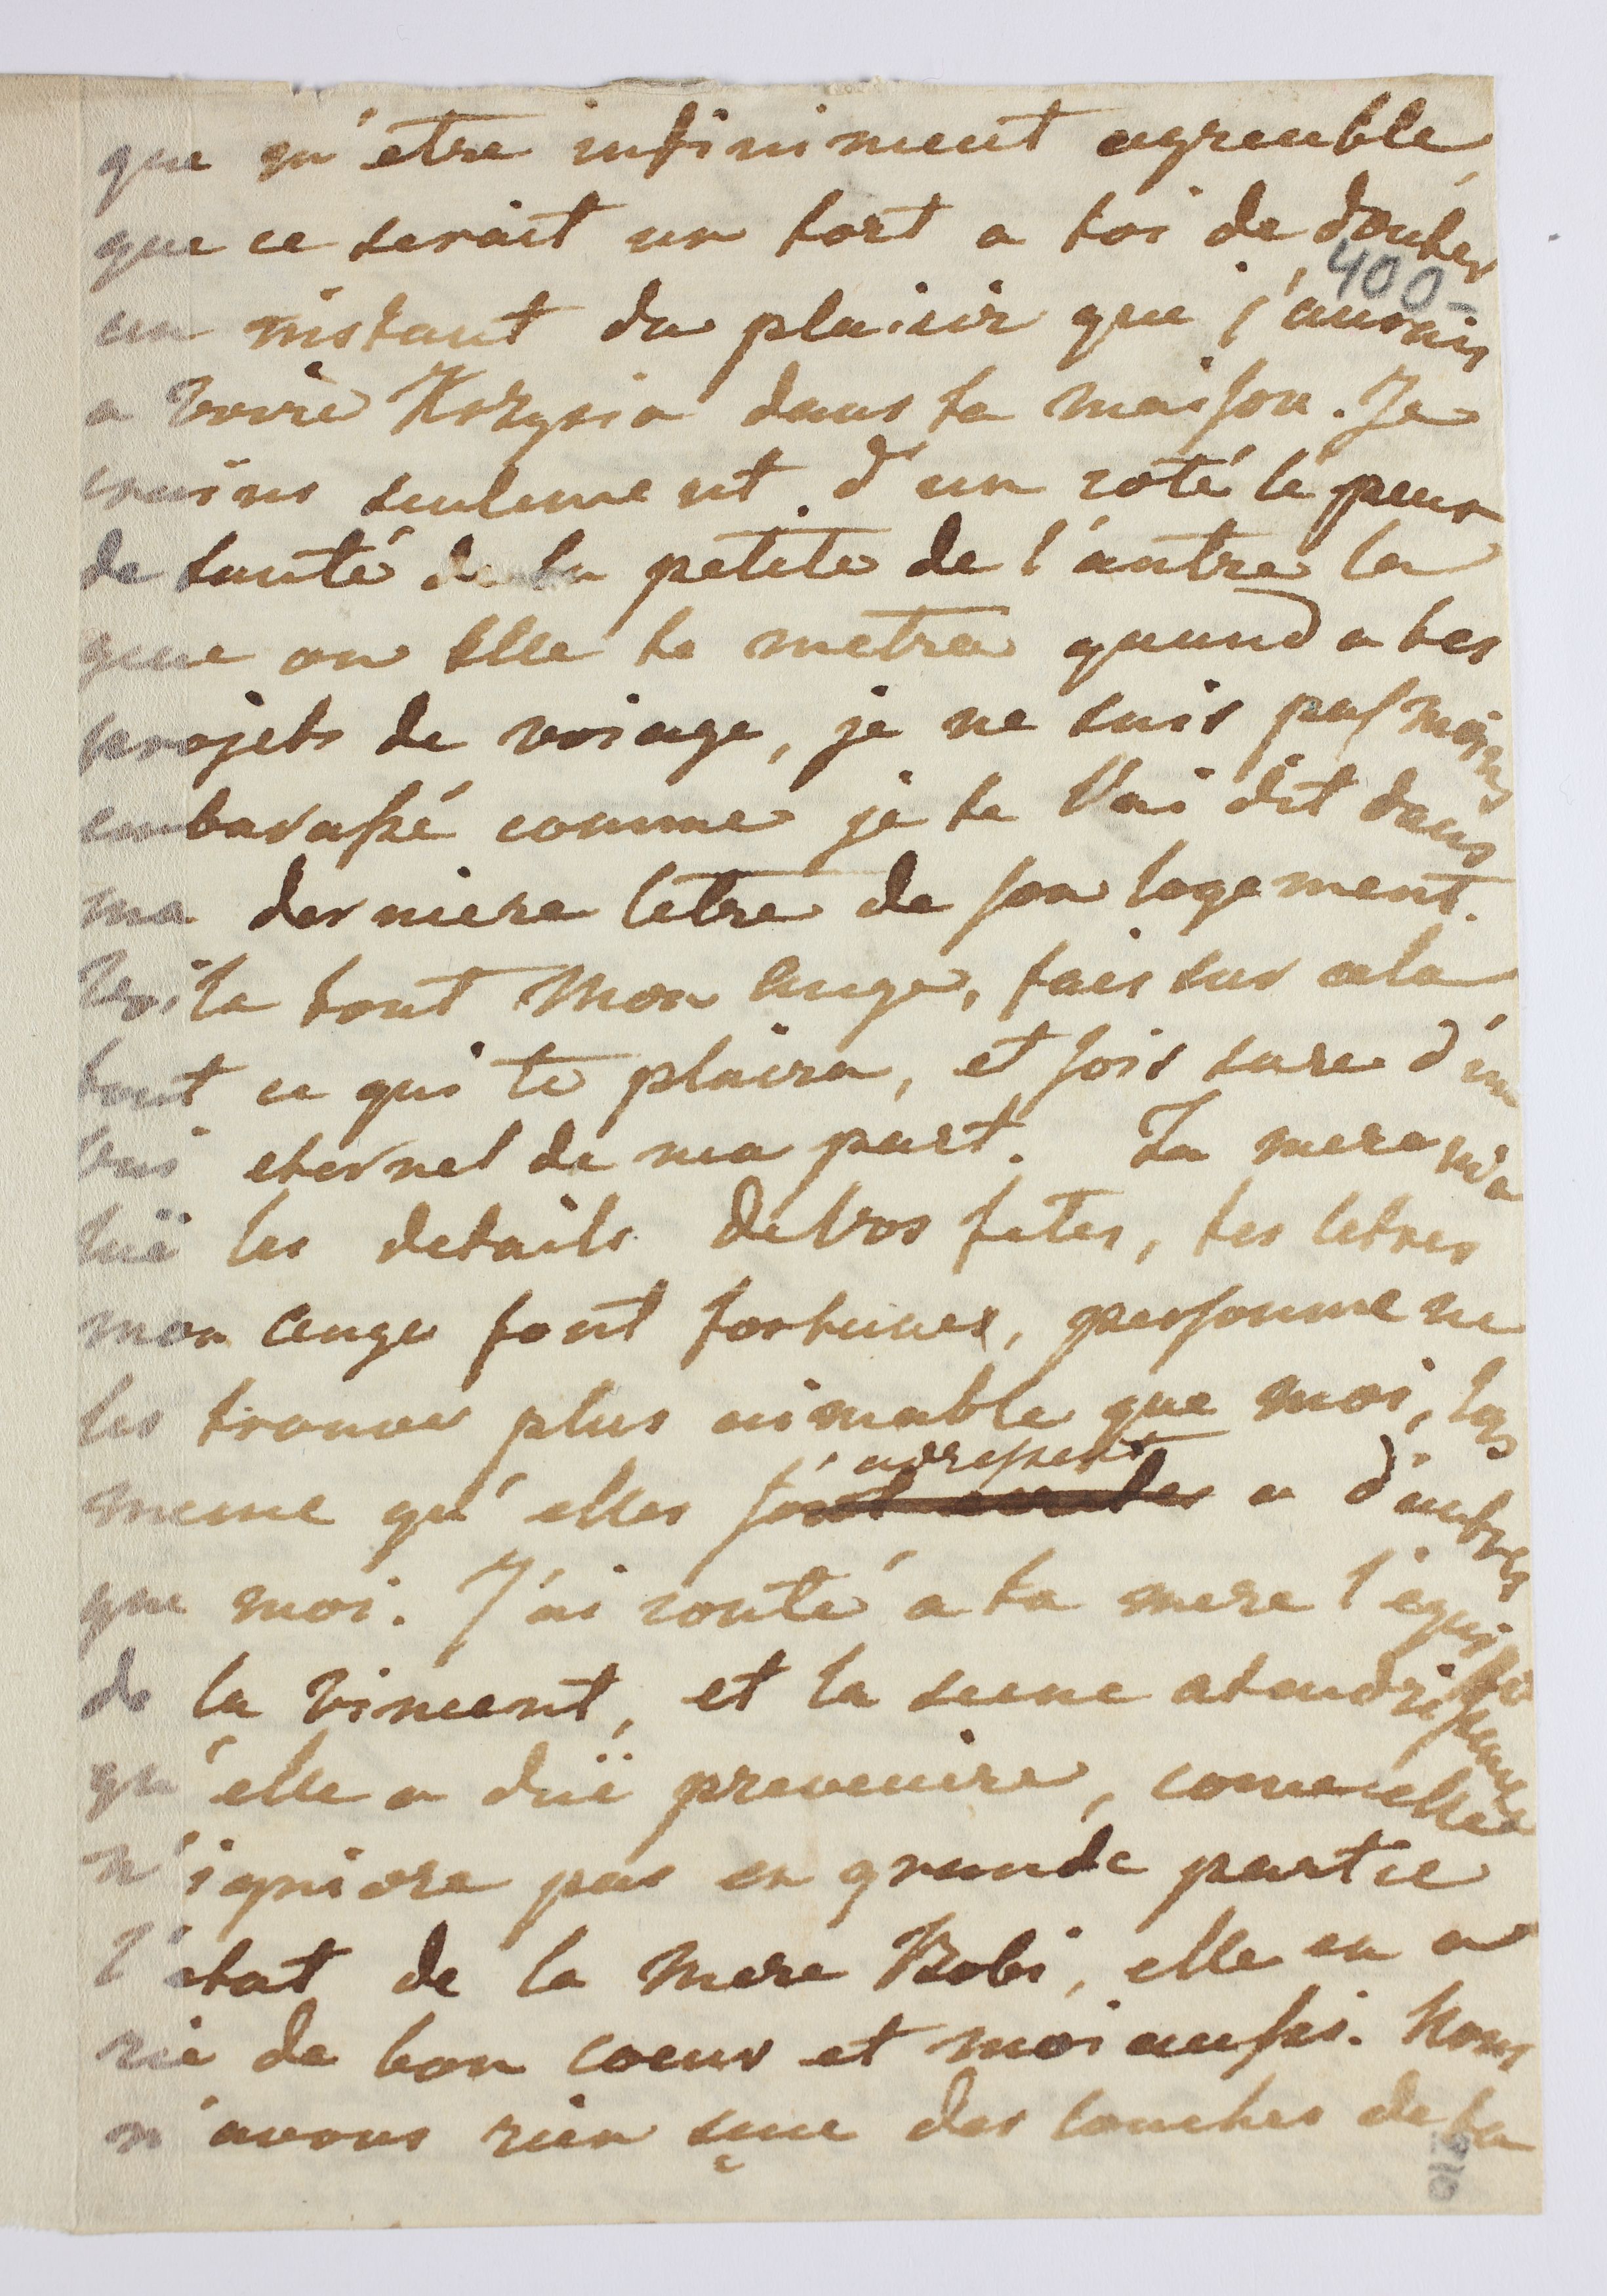 que m'être infiniment agreable,
que ce serait un tort a toi de douter
400-
un instant du plaisir que j'aurais
a voire Krzysia dans ta maison. Je
crains seulement d'un coté le peu
de santé de la petite de l'autre la
gene ou elle te metra quand a tes
projets de voiage, je ne suis pas moins
embarassé comme je te l'ai dit dans
ma derniere letre de son logement.
Voila tout mon ange, fais sur cela
tout ce qui te plaira, et sois sure d'un
oui eternel de ma part. Ta mere m'a
lüe les details de vos fetes, tes letres
mon ange font fortunes, personne ne
les trouve plus aimable que moi, lors
adressent
meme qu'elles s' a d'autres
que moi. J'ai conté a ta mere l'equi
de la Vincent, et la scene atendrissante
qu'elle a düe prevenire, come elle
n'igniore pas en grande partie
l'etat de la mere Bobi, elle en a
rie de bon coeur et moi aussi. Nous
n'avons rien sçue des couches de ta